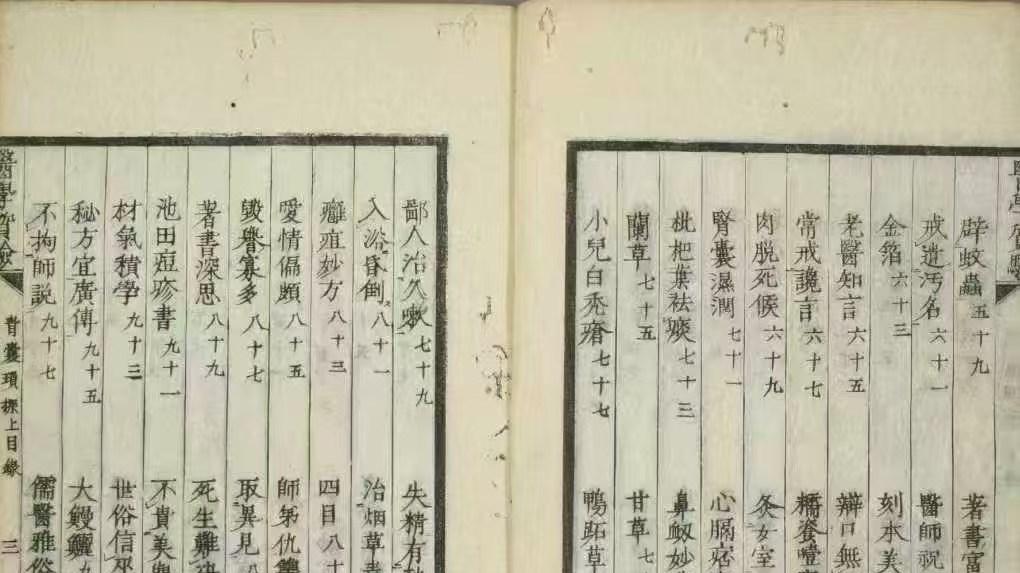 辟蚊蟲 五十九 著書富
戒遺汚名 六十一 醫師祝
金箔 六十三 刻本美
老醫知言 六十五 辯口無
常戒讒言 六十七 橘餈噎
肉脫死候 六十九 灸女室
腎囊濕潤 七十一 心膈痞
枇杷葉袪痰 七十三 鼻衂妙
蘭草 七十五 甘草 七
小兒白禿瘡 七十七 鴨跖草
鄙人治久嗽 七十九 失精有
入浴昏倒 八十一 治烟草
癰疽妙方 八十三 四目 八十
愛情偏頗 八十五 師弟仇讐
毀譽寡多 八十七 取異見 八
著書深思 八十九 死生難
池田痘疹書 九十一 不貴美
材氣積學 九十三 世俗信巫
秘方宜廣傳 九十五 大鰻鱺 九
不拘師説 九十七 儒醫雅俗
醫學質驗 青囊瑣探上目錄 三